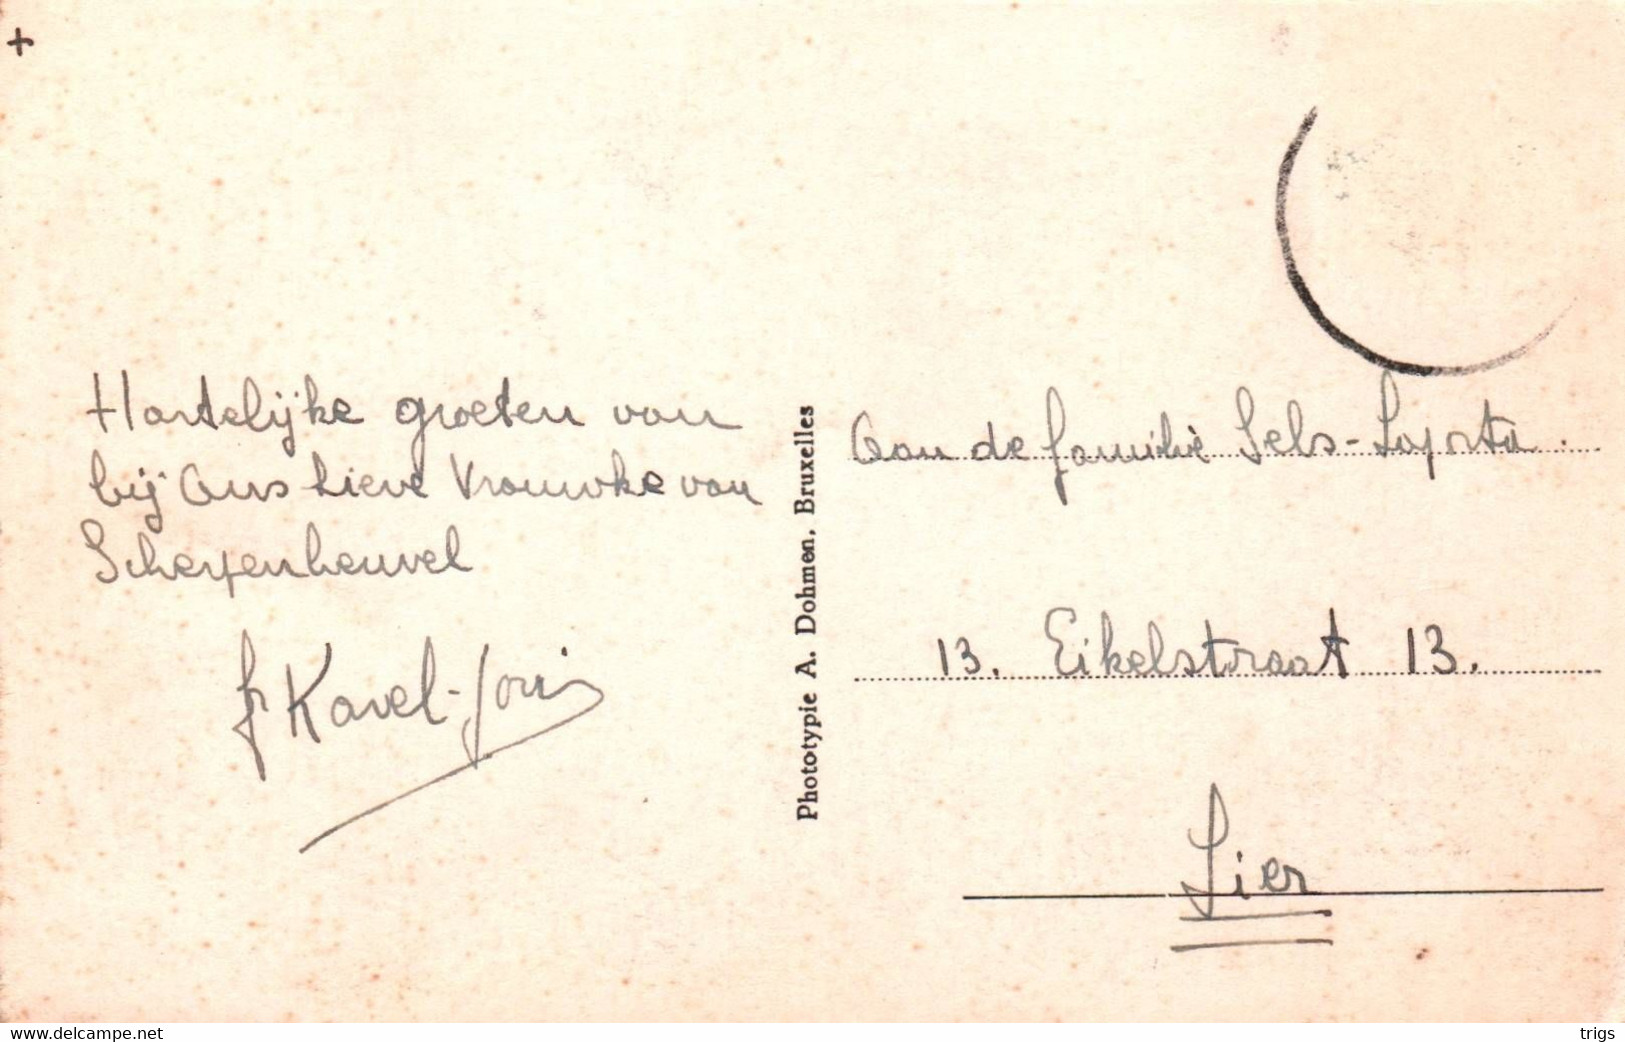 +
Hartelijke groeten van
bij Ons Lieve Vrouwke van
Scherpenheuvel
fr Kavel-Joris
Phototypie A. Dohmen, Bruxelles
Aan de familie Sels-Laporta.
13. Eikelstraat 13.
Lier
www.delcampe.net
trigs